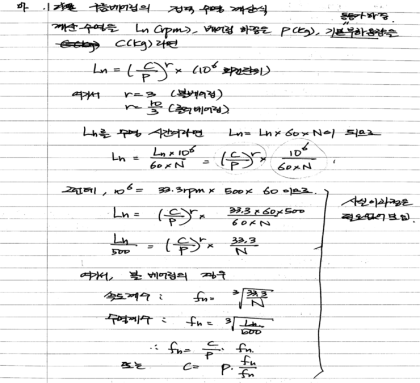 마. 구름베어링의 정격 수명 계산식
동등가 하중
계산 수명은 Ln (rpm), 베어링 하중은 P(kg), 기본부하용량은
C(kg) 라면
Ln = (C/P)^r × (10^6 회전단위)
여기서 r = 3 (볼베어링)
r = 10/3 (롤러베어링)
Ln을 수명 시간이라면 Ln = Ln × 60 × N이 되므로
Ln = Ln×10^6 / 60×N = (C/P)^r × 10^6 / 60×N
그런데, 10^6 = 33.3rpm × 500 × 60 이므로.
Ln = (C/P)^r × 33.3×60×500 / 60×N
Ln/500 = (C/P)^r × 33.3/N
여기서, 볼 베어링의 경우
속도계수 : fn = ³√(33.3/N)
수명계수 : fn = ³√(Ln/500)
∴ fn = C/P · fn
또는 C = P · fn/fn
사실 이과정은
필요없어 보임.